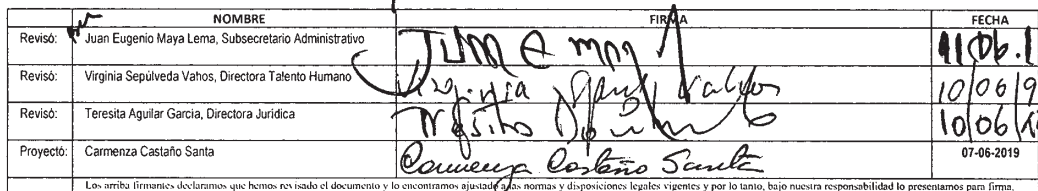 NOMBRE FIRMA FECHA
Revisó: Juan Eugenio Maya Lema, Subsecretario Administrativo 11/06.1
Revisó: Virginia Sepúlveda Vahos, Directora Talento Humano Virginia Vahos 10/06/9
Revisó: Teresita Aguilar García, Directora Jurídica 10/06/19
Proyectó: Carmenza Castaño Santa Carmenza Castaño Santa 07-06-2019
Los arriba firmantes declaramos que hemos revisado el documento y lo encontramos ajustado a las normas y disposiciones legales vigentes y por lo tanto, bajo nuestra responsabilidad lo presentamos para firma.